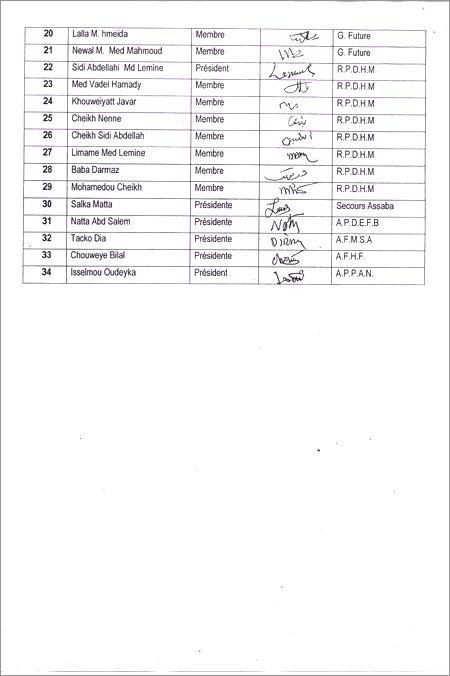 20 Lalla M. hmeida Membre G. Future
21 Newal M. Med Mahmoud Membre G. Future
22 Sidi Abdellahi Md Lemine Président R.P.D.H.M
23 Med Vadel Hamady Membre R.P.D.H.M
24 Khouweiyatt Javar Membre R.P.D.H.M
25 Cheikh Nenne Membre R.P.D.H.M
26 Cheikh Sidi Abdellah Membre R.P.D.H.M
27 Limame Med Lemine Membre R.P.D.H.M
28 Baba Darmaz Membre R.P.D.H.M
29 Mohamedou Cheikh Membre R.P.D.H.M
30 Salka Matta Présidente Secours Assaba
31 Natta Abd Salem Présidente A.P.D.E.F.B
32 Tacko Dia Présidente A.F.M.S.A
33 Chouweye Bilal Présidente A.F.H.F.
34 Isselmou Oudeyka Président A.P.P.A.N.